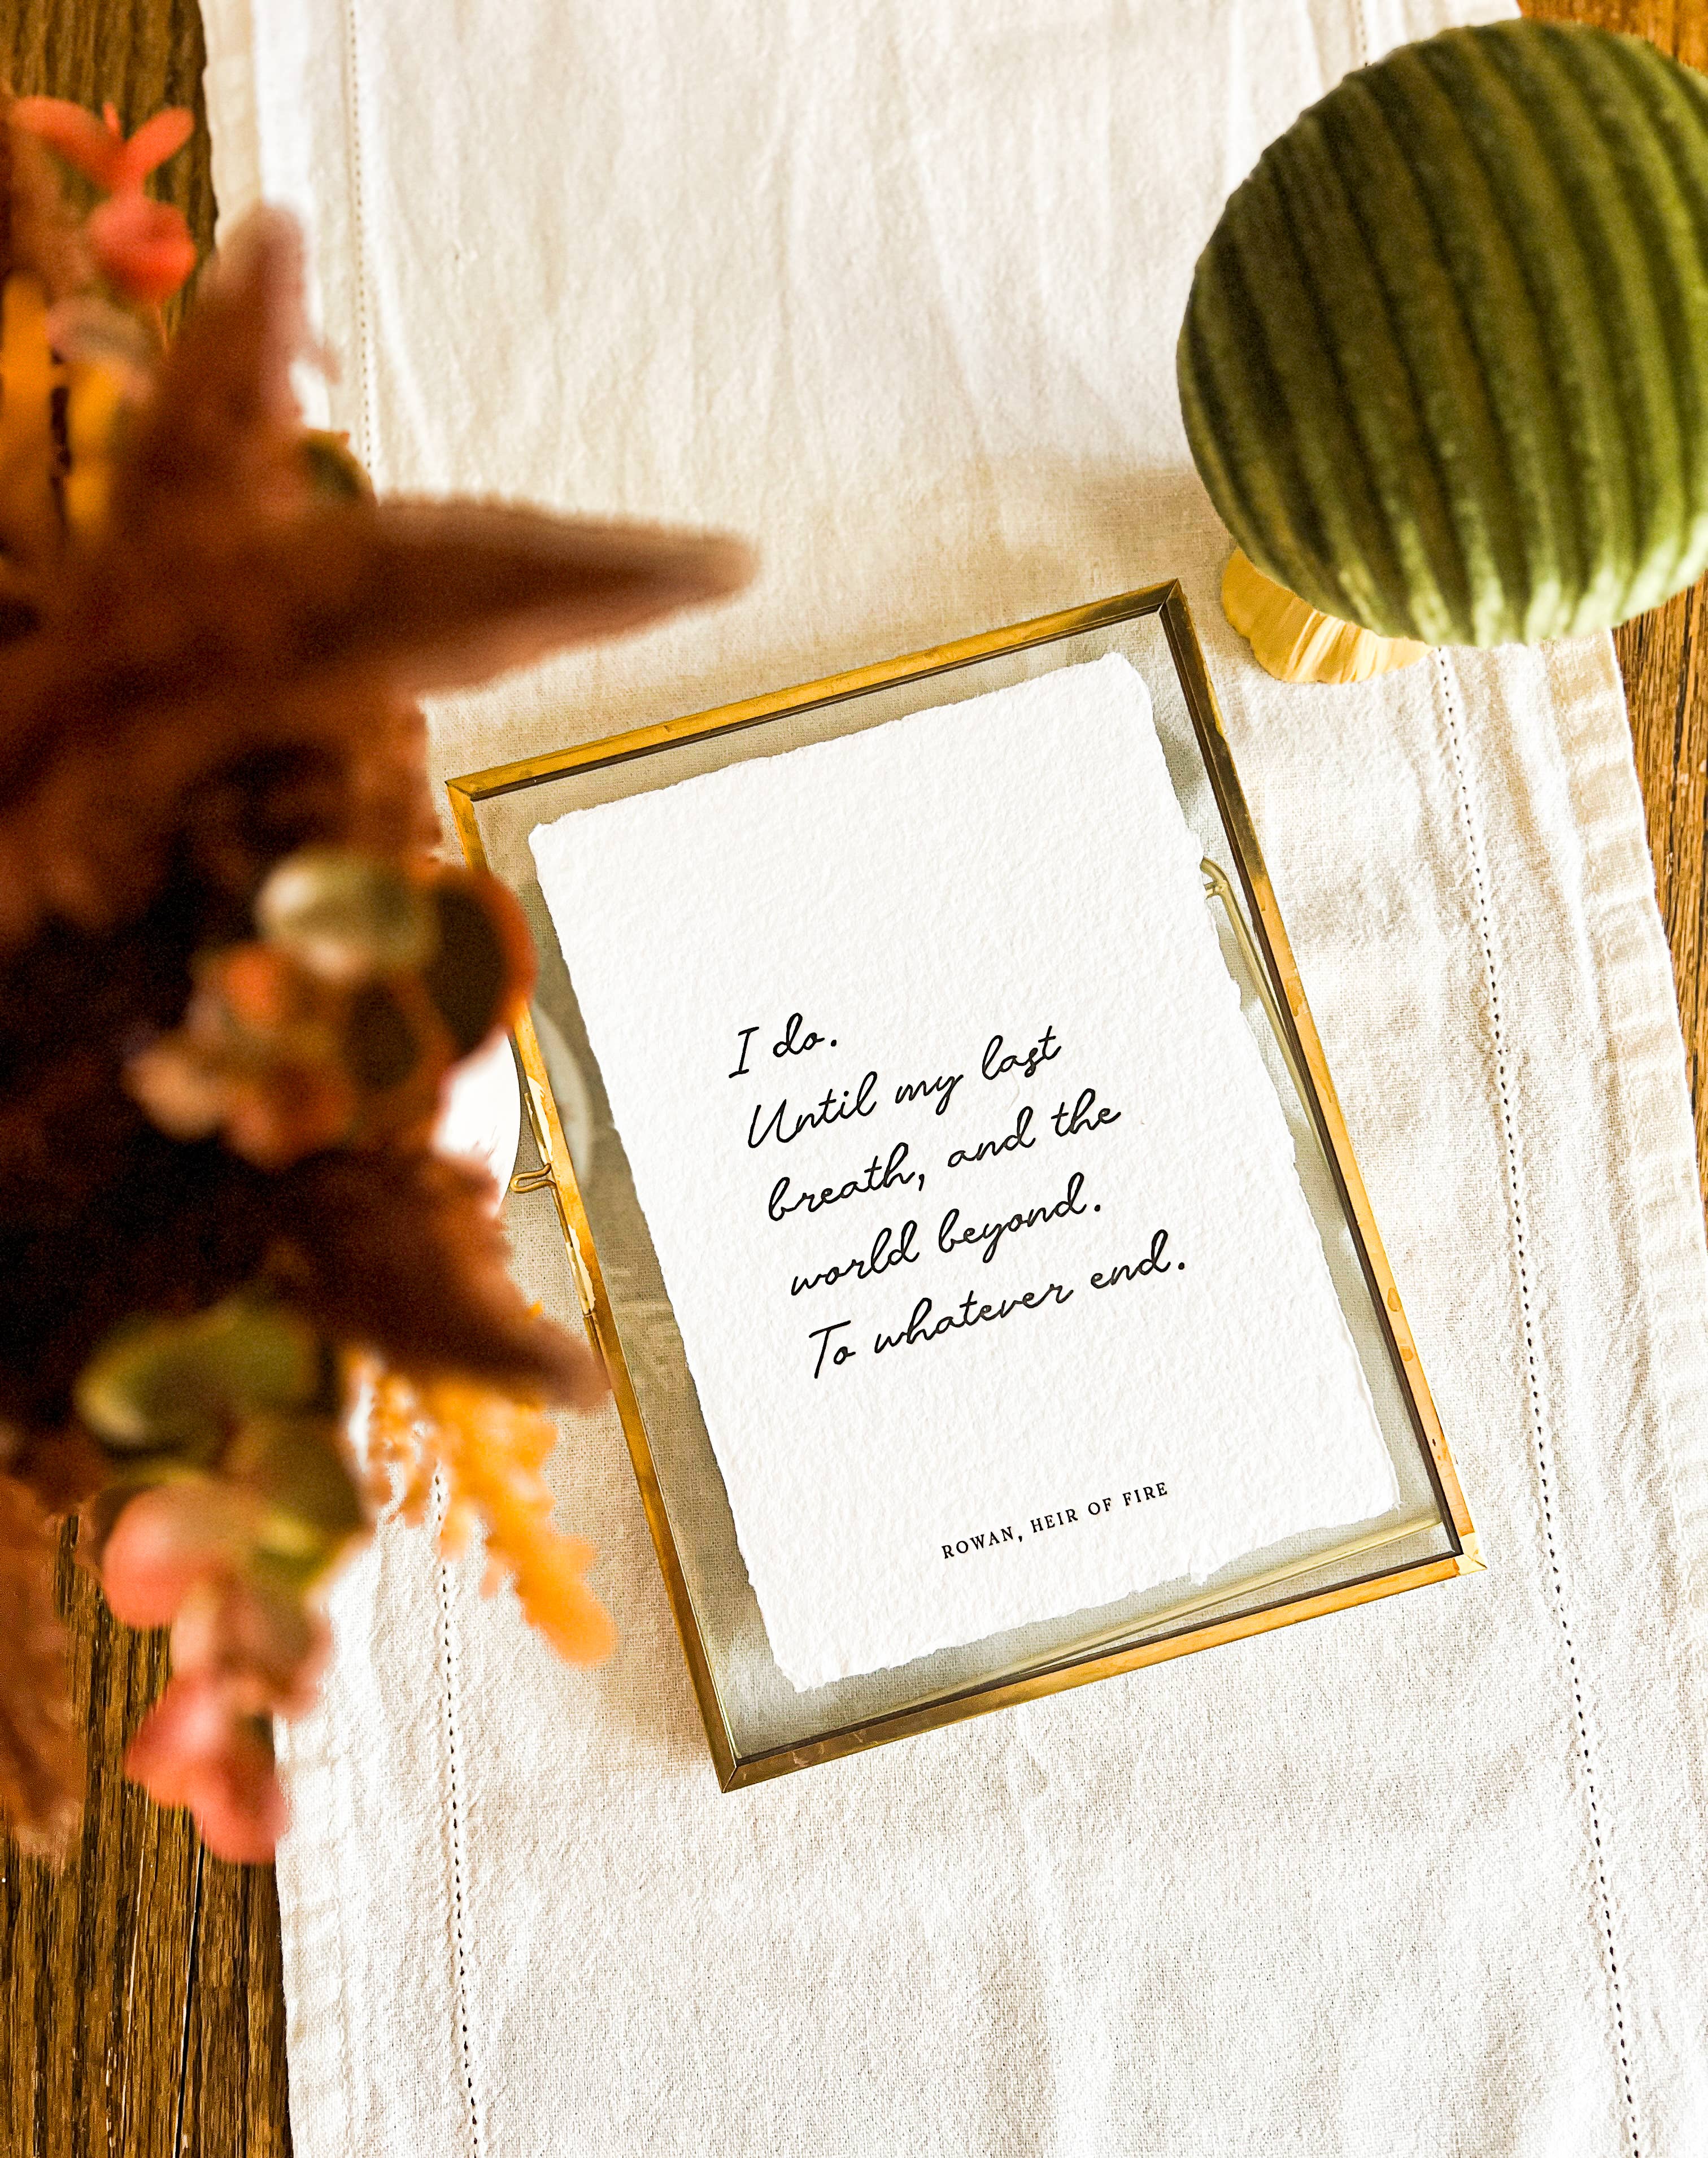 I do.
Until my last
breath, and the
world beyond.
To whatever end.
ROWAN, HEIR OF FIRE